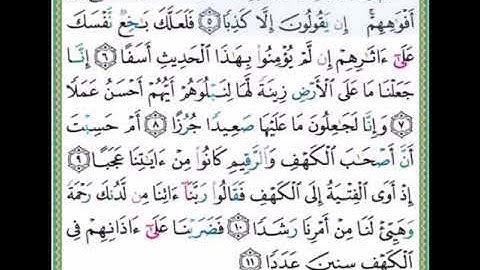 أَفْوَٰهِهِمْ ۚ إِن يَقُولُونَ إِلَّا كَذِبًا ۝٥ فَلَعَلَّكَ بَـٰخِعٌ نَّفْسَكَ
عَلَىٰٓ ءَاثَـٰرِهِمْ إِن لَّمْ يُؤْمِنُوا۟ بِهَـٰذَا ٱلْحَدِيثِ أَسَفًا ۝٦ إِنَّا
جَعَلْنَا مَا عَلَى ٱلْأَرْضِ زِينَةً لَّهَا لِنَبْلُوَهُمْ أَيُّهُمْ أَحْسَنُ عَمَلًا
۝٧ وَإِنَّا لَجَـٰعِلُونَ مَا عَلَيْهَا صَعِيدًا جُرُزًا ۝٨ أَمْ حَسِبْتَ
أَنَّ أَصْحَـٰبَ ٱلْكَهْفِ وَٱلرَّقِيمِ كَانُوا۟ مِنْ ءَايَـٰتِنَا عَجَبًا ۝٩
إِذْ أَوَى ٱلْفِتْيَةُ إِلَى ٱلْكَهْفِ فَقَالُوا۟ رَبَّنَآ ءَاتِنَا مِن لَّدُنكَ رَحْمَةً
وَهَيِّئْ لَنَا مِنْ أَمْرِنَا رَشَدًا ۝١٠ فَضَرَبْنَا عَلَىٰٓ ءَاذَانِهِمْ فِى
ٱلْكَهْفِ سِنِينَ عَدَدًا ۝١١